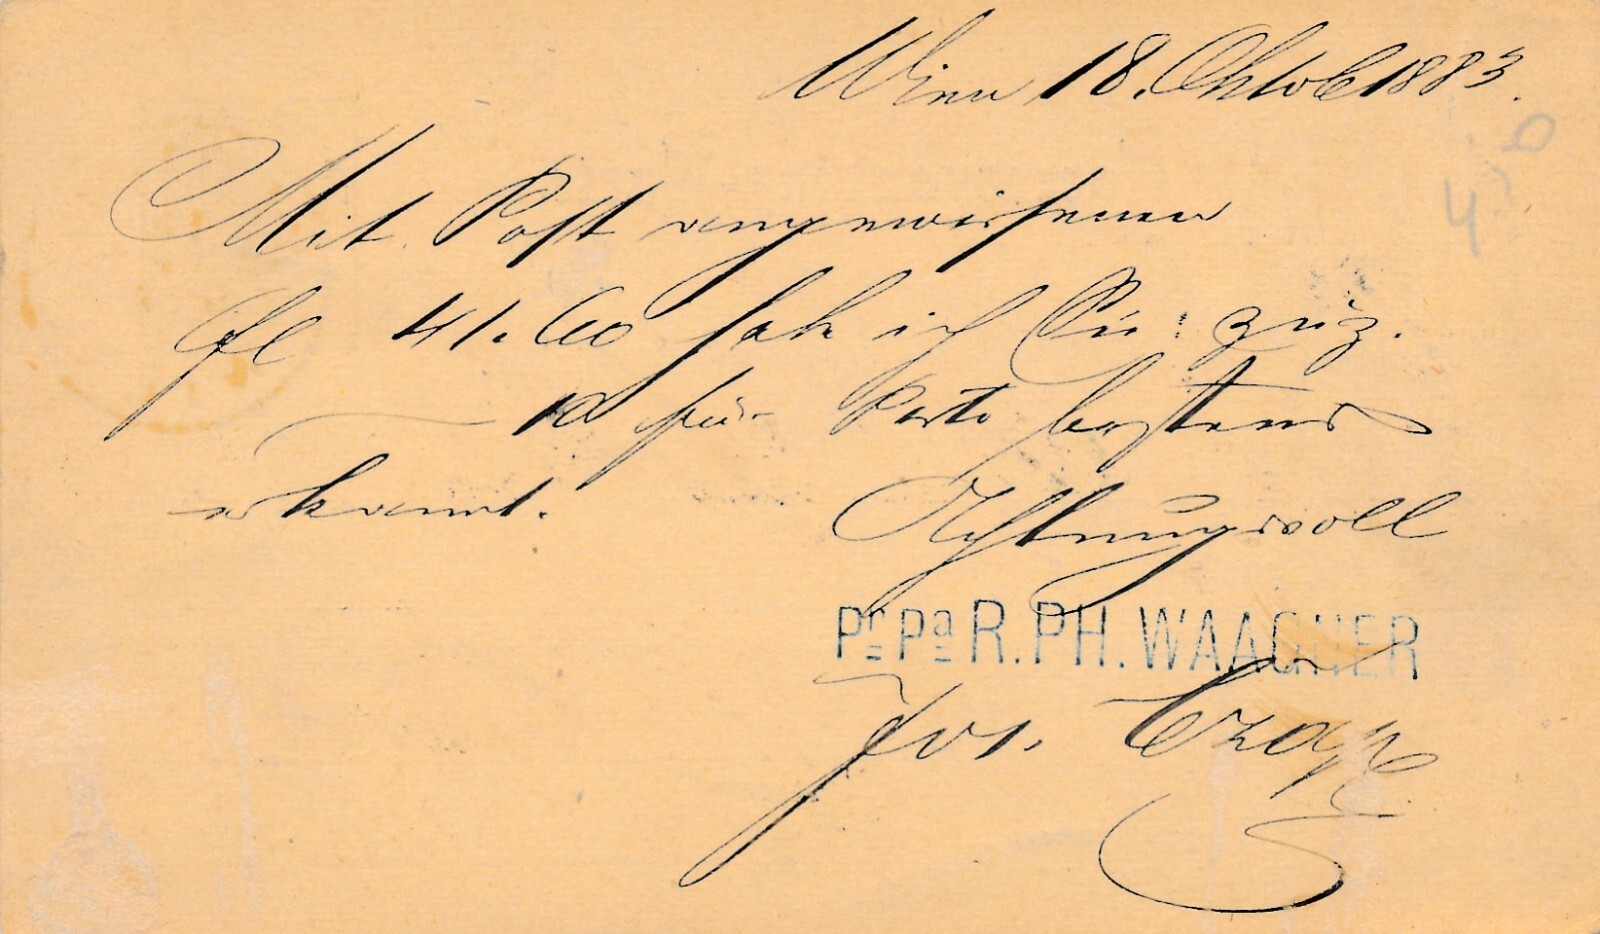 Wien 18. Oktob 1883.
Mit Post angewiesenen
fl 41.60 hab ich Sie: zuz.
10 für Porto bestens
erkannt.
Achtungsvoll
Pr Pa R. PH. WAAGNER
Jos. Czapp